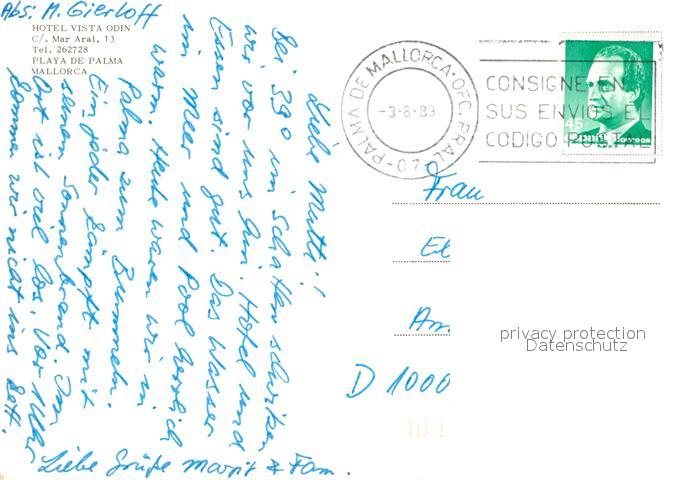 Abs: M. Gierloff
HOTEL VISTA ODIN
C/. Mar Aral, 13
Tel. 262728
PLAYA DE PALMA
MALLORCA
Liebe Mutti!
Bei 39° im Schatten schwitzen
wir vor uns hin. Hotel und
Essen sind gut. Das Wasser
im Meer und Pool herrlich
warm. Heute waren wir in
Palma zum Bummeln.
Ein jeder kämpft mit
seinem Sonnenbrand. Im
Ort ist viel los. Vor 1 Uhr
kommen wir nicht ins Bett.
Liebe Grüße Margit & Fam.
PALMA DE MALLORCA·OFC.PRAL
-3-8-89
070
CONSIGNE EN
SUS ENVIOS EL
CODIGO POSTAL
45
España Correos
Frau
El
Am
D 1000
privacy protection
Datenschutz